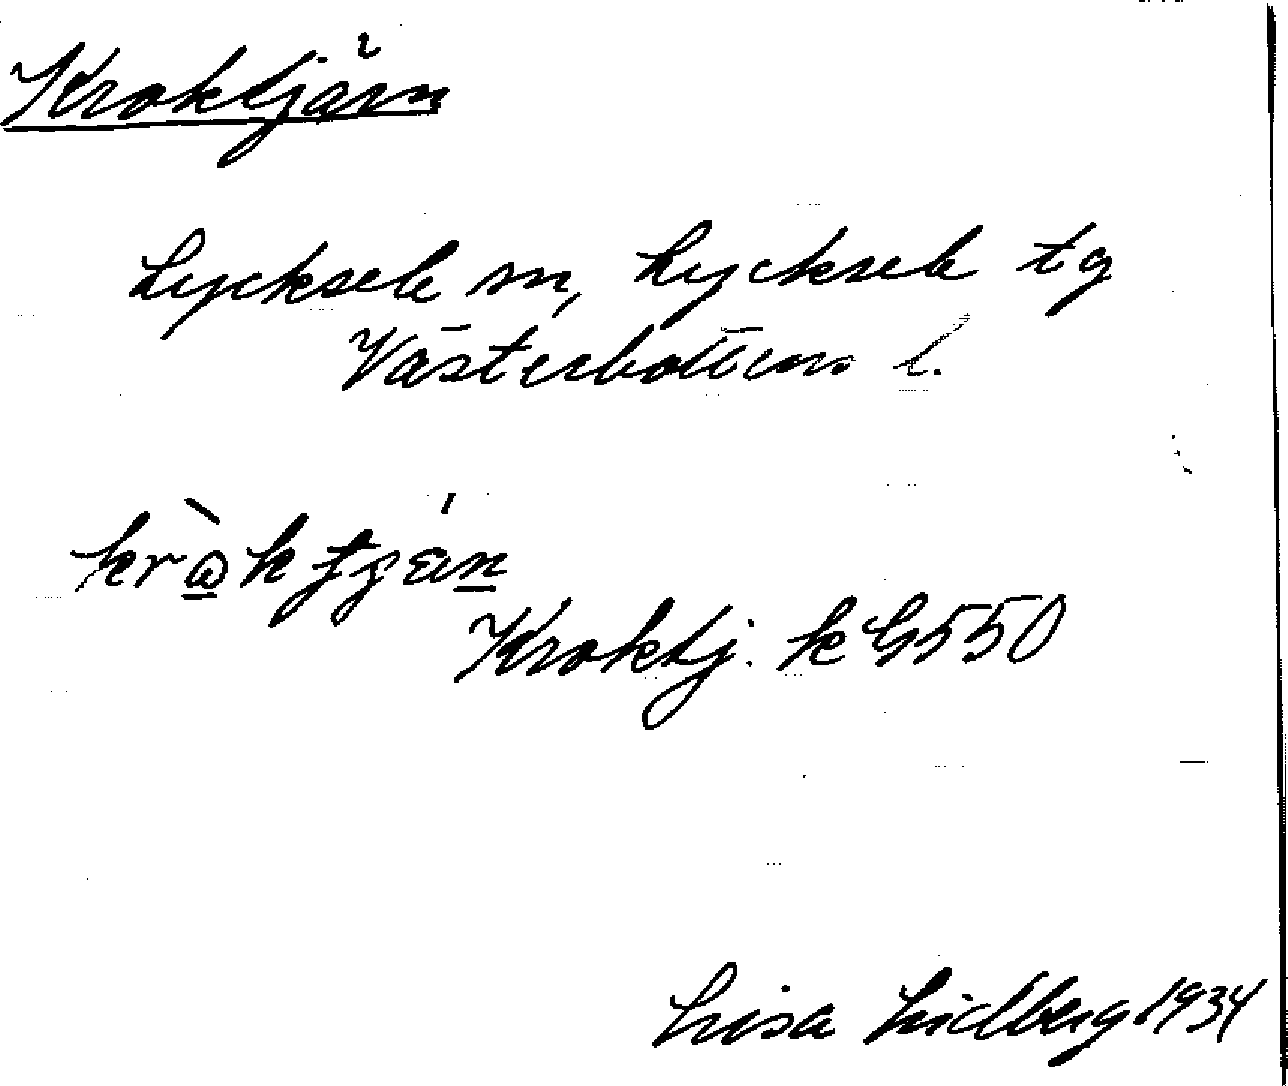 Kroktjärn
Lycksele sn, Lycksele tg
Västerbottens l.
Kroktj. k G550
Lisa Lidberg 1934